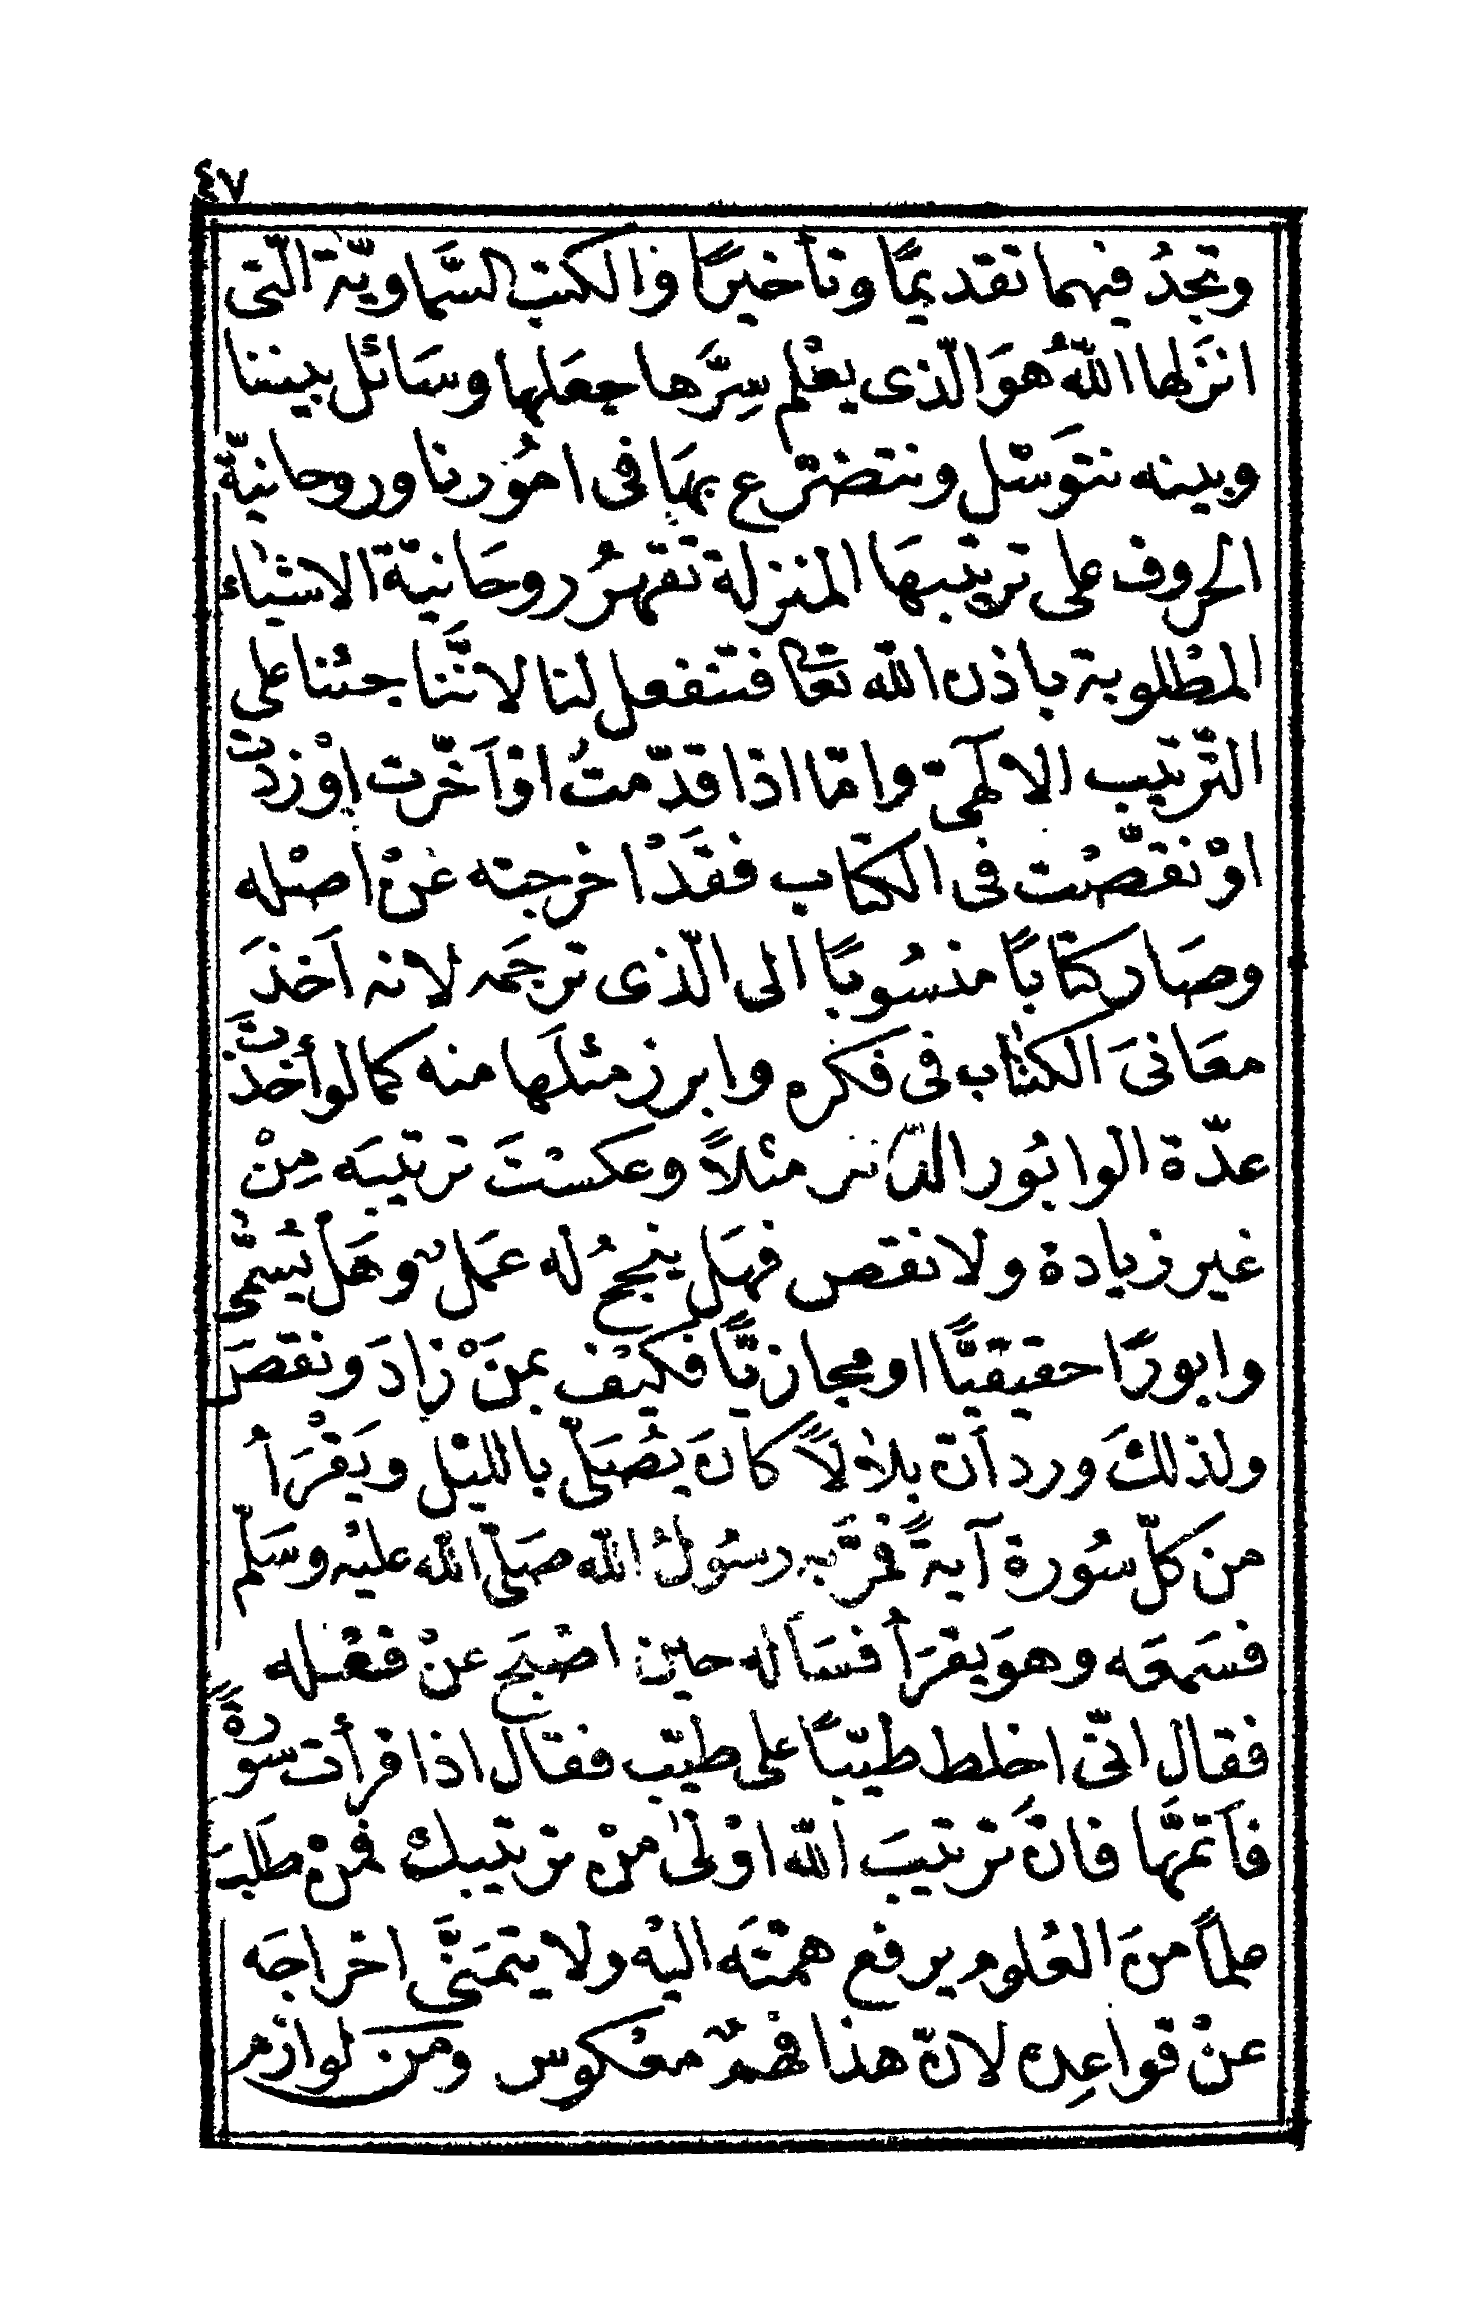 ٤٧
وتجدُ فيهما تقديمًا وتأخيرًا والكتب السَّماويّة الّتى
انزَلها اللّهُ هوَ الّذى يعْلم سِرَّها جعَلها وسَائل بيننا
وبينه نتوَسّل ونتضرّع بهَا فى امُورنا وروحانيّة
الحروف على ترتيبهَا المنزلة تقهرُ روحَانيّة الاشيٰاء
المطْلوبة باذن اللّه تعٰا فتنفعل لنا لانَّنا جئنا على
التّرتيب الالٓهىّ وامّا اذا قدّمتُ اوْ اَخّرت اوْ زدتّ
اوْ نقصّْت فى الكتاب فقَدْ اخرجته عَنْ اصْله
وصَار كتابًا منسُوبًا الى الّذى ترجَمه لانه اَخذَ
معَانىَ الكتٰاب فى فكره وابرز مثلَها منه كمالو أخذتَّ
عدّة الوابُور الذى مثلاً وعكسْتَ ترتيبَه مِنْ
غير زيادة ولا نقص فهَل ينجحُ له عَملٌ وهَل يُسَمّٰى
وابورًا حقيقيًّا او مجازيًّا فكيْف بمنَ زْادَ ونقصَ
ولذلكَ ورد اَنّ بلاٰلاً كانَ يُصَلّى بالليْل ويَقْرَأُ
من كلّ سُورة آيةً فمرَّ به رسُولُ اللّه صَلّى اللّه عليْه وسَلّم
فسَمعَه وهوَ يقرَأُ فسَأله حين اصْبَح عنْ فعْله
فقال انّى اخلط طيّبًا على طيّب فقال اذا قرأت سورةً
فاَتمّهَا فانّ ترتيبَ اللّه اوْلىٰ منْ ترتيبك فمنْ طلَبَ
علمًا منَ العُلوم يرفع همّتَه اليْه ولا يتمَنَّى اخراجَه
عنْ قواعِده لانّ هذا فهمٌ معْكوس ومَن لوازم